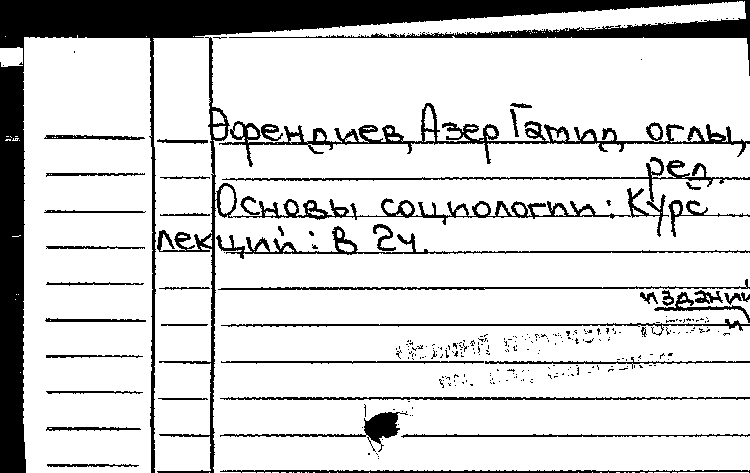 Эфендиев, Азер Гамид оглы,
ред.
Основы социологии: Курс
лекций: в 2ч.
изданий
и